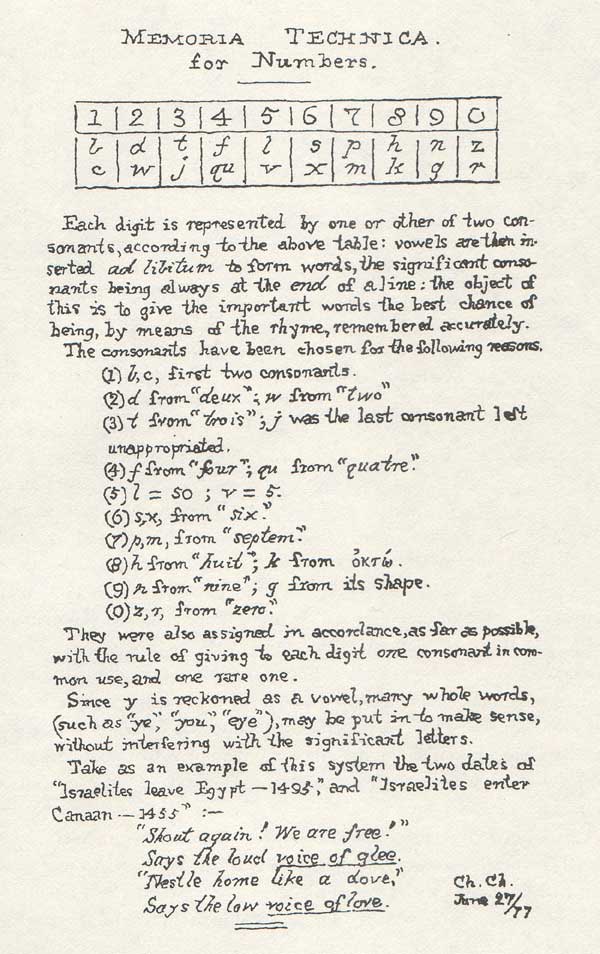 MEMORIA TECHNICA.
for Numbers.
1 | 2 | 3 | 4 | 5 | 6 | 7 | 8 | 9 | 0
b | d | t | f | l | s | p | h | n | z
c | w | j | qu | v | x | m | k | g | r
Each digit is represented by one or other of two con-
sonants, according to the above table: vowels are then in-
serted ad libitum to form words, the significant conso-
nants being always at the end of a line: the object of
this is to give the important words the best chance of
being, by means of the rhyme, remembered accurately.
The consonants have been chosen for the following reasons.
(1) b, c, first two consonants.
(2) d from "deux"; w from "two"
(3) t from "trois"; j was the last consonant left
unappropriated.
(4) f from "four"; qu from "quatre."
(5) l = 50 ; v = 5.
(6) s, x, from "six."
(7) p, m, from "septem."
(8) h from "huit"; k from ὀκτώ.
(9) n from "nine"; g from its shape.
(0) z, r, from "zero."
They were also assigned in accordance, as far as possible,
with the rule of giving to each digit one consonant in com-
mon use, and one rare one.
Since y is reckoned as a vowel, many whole words,
(such as "ye," "you," "eye"), may be put in to make sense,
without interfering with the significant letters.
Take as an example of this system the two dates of
"Israelites leave Egypt — 1495," and "Israelites enter
Canaan — 1455" :—
"Shout again! We are free!"
Says the loud voice of glee.
"Nestle home like a dove,"
Says the low voice of love.
Ch. Ch.
June 27/77